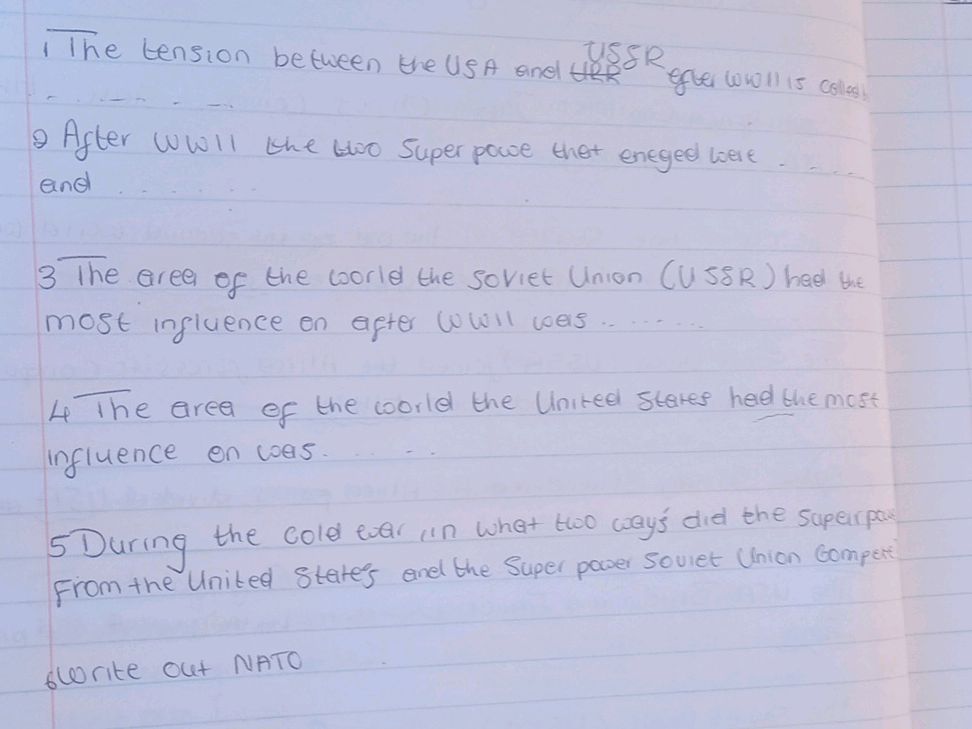 1 The tension between the USA and USSR after WWII is called
. . . . . . . .
2 After WWII the two Super powe that eneged were . . . . .
and . . . . . .
3 The area of the world the Soviet Union (USSR) had the
most influence on after WWII was . . . . . . .
4 The area of the world the United States had the most
influence on was. . . . .
5 During the cold war, in what two ways did the Superpow
From the United States and the Super power Soviet Union Compete
6 Write out NATO